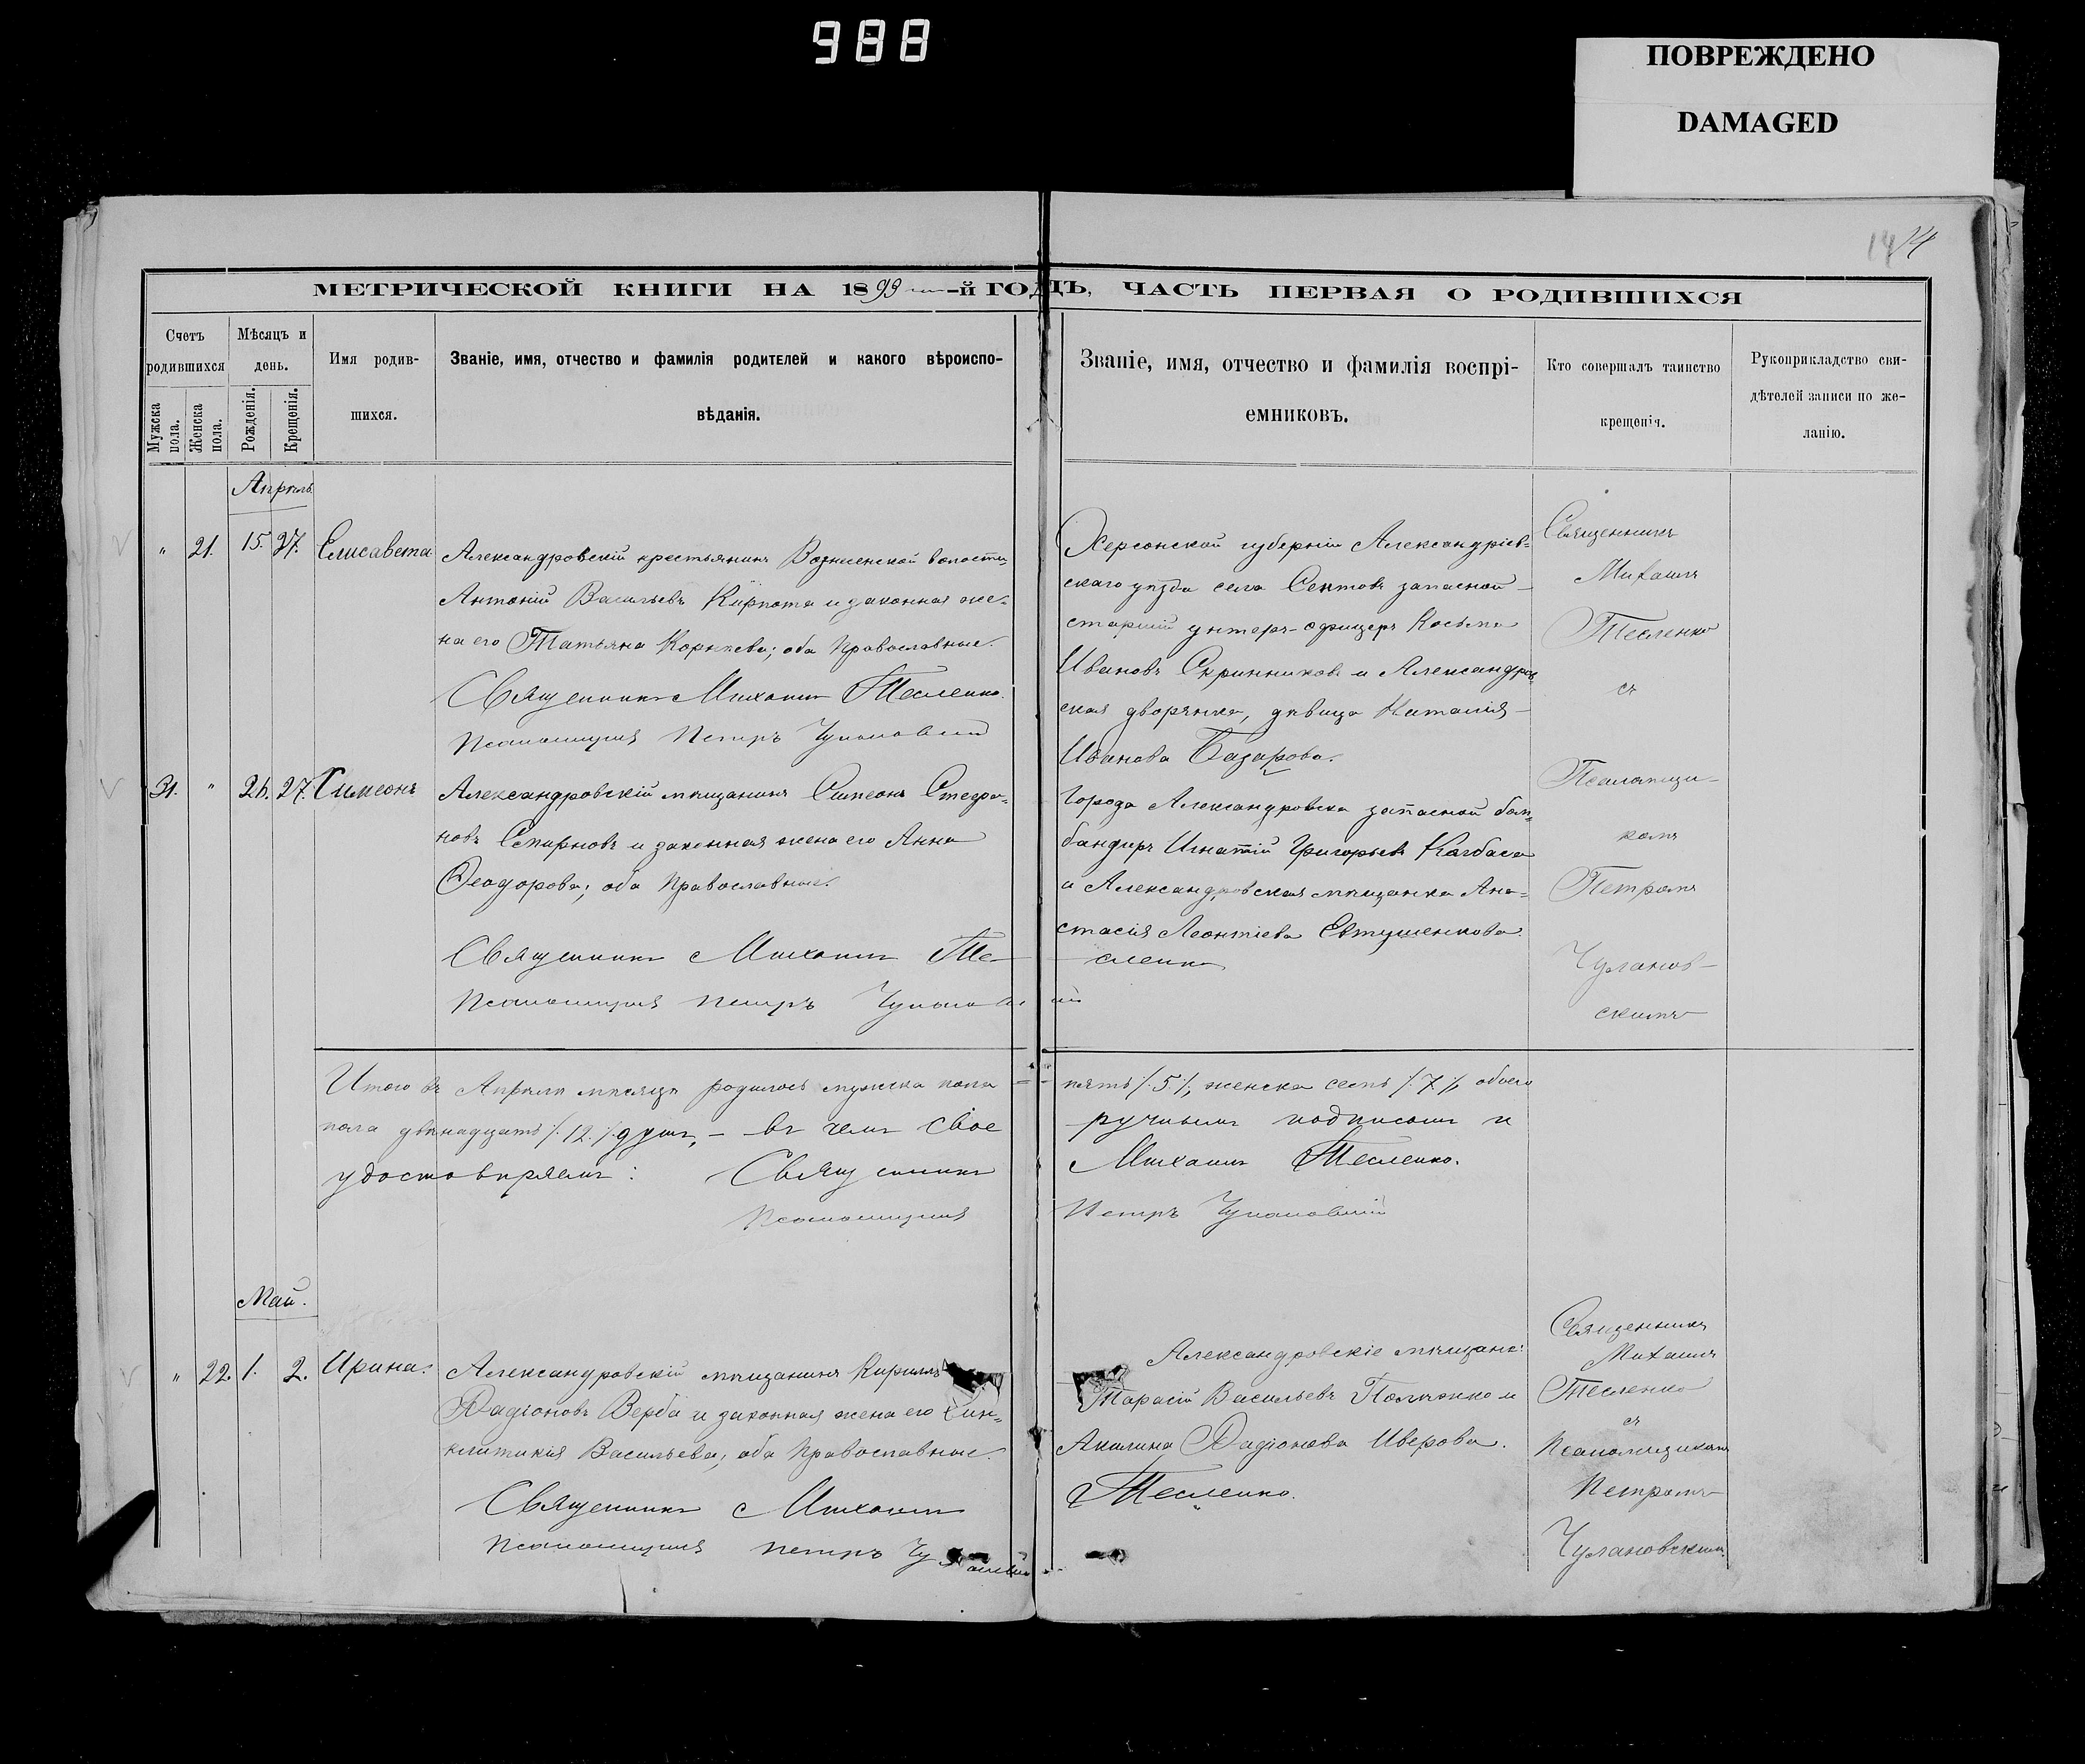 988
ПОВРЕЖДЕНО
DAMAGED
14
МЕТРИЧЕСКОЙ КНИГИ НА 1899-й ГОДЪ, ЧАСТЬ ПЕРВАЯ О РОДИВШИХСЯ
Счетъ родившихся
Мужска пола.
Женска пола.
Мѣсяцъ и день.
Рожденія.
Крещенія.
Имя родив-
шихся.
Званіе, имя, отчество и фамилія родителей и какого вѣроиспо-
вѣданія.
Званіе, имя, отчество и фамилія воспрі-
емниковъ.
Кто совершалъ таинство
крещенія.
Рукоприкладство сви-
дѣтелей записи по же-
ланію.
Апрѣль
" 21. 15. 27. Елисавета
Александровскій крестьянинъ Вознесенской волости
Антоній Васильевъ Кирпота и законная же-
на его Татьяна Корнѣева; оба православные.
Священникъ Михаилъ Тесленко.
Псаломщикъ Петръ Чулановскій
Херсонской губерніи Александрійв-
скаго уѣзда села Сентова запасной
старшій унтеръ-офицеръ Косьма
Ивановъ Скринниковъ и Александров-
ская дворянка, дѣвица Наталія
Иванова Базарова.
Священникъ
Михаилъ
Тесленко
съ
Псаломщи-
комъ
Петромъ
Чуланов-
скимъ
31. " 26. 27. Симеонъ
Александровскій мѣщанинъ Симеонъ Стефа-
новъ Смирновъ и законная жена его Анна
Ѳеодорова; оба православные.
Священникъ Михаилъ Тесленко
Псаломщикъ Петръ Чулановскій
Города Александровска запасной бом-
бандиръ Игнатій Григорьевъ Калбаса
и Александровская мѣщанка Ана-
стасія Леонтіева Евтушенкова.
Итого въ Апрѣлѣ мѣсяцѣ родилось мужска пола пять /.5./, женска семь /.7./, обоего
пола двѣнадцать /.12./ душъ, – въ чемъ своеручнымъ подписомъ и
удостовѣряемъ: Священникъ Михаилъ Тесленко.
Псаломщикъ Петръ Чулановскій
Май.
" 22. 1. 2. Ирина.
Александровскій мѣщанинъ Кириллъ
Радіоновъ Верба и законная жена его Син-
клитикія Васильева; оба православные.
Священникъ Михаилъ Тесленко.
Псаломщикъ Петръ
Александровскіе мѣщане:
Тарасій Васильевъ и
Акилина Радіонова Иверова.
Священникъ
Михаилъ
Тесленко
съ
Псаломщикомъ
Петромъ
Чулановскимъ.